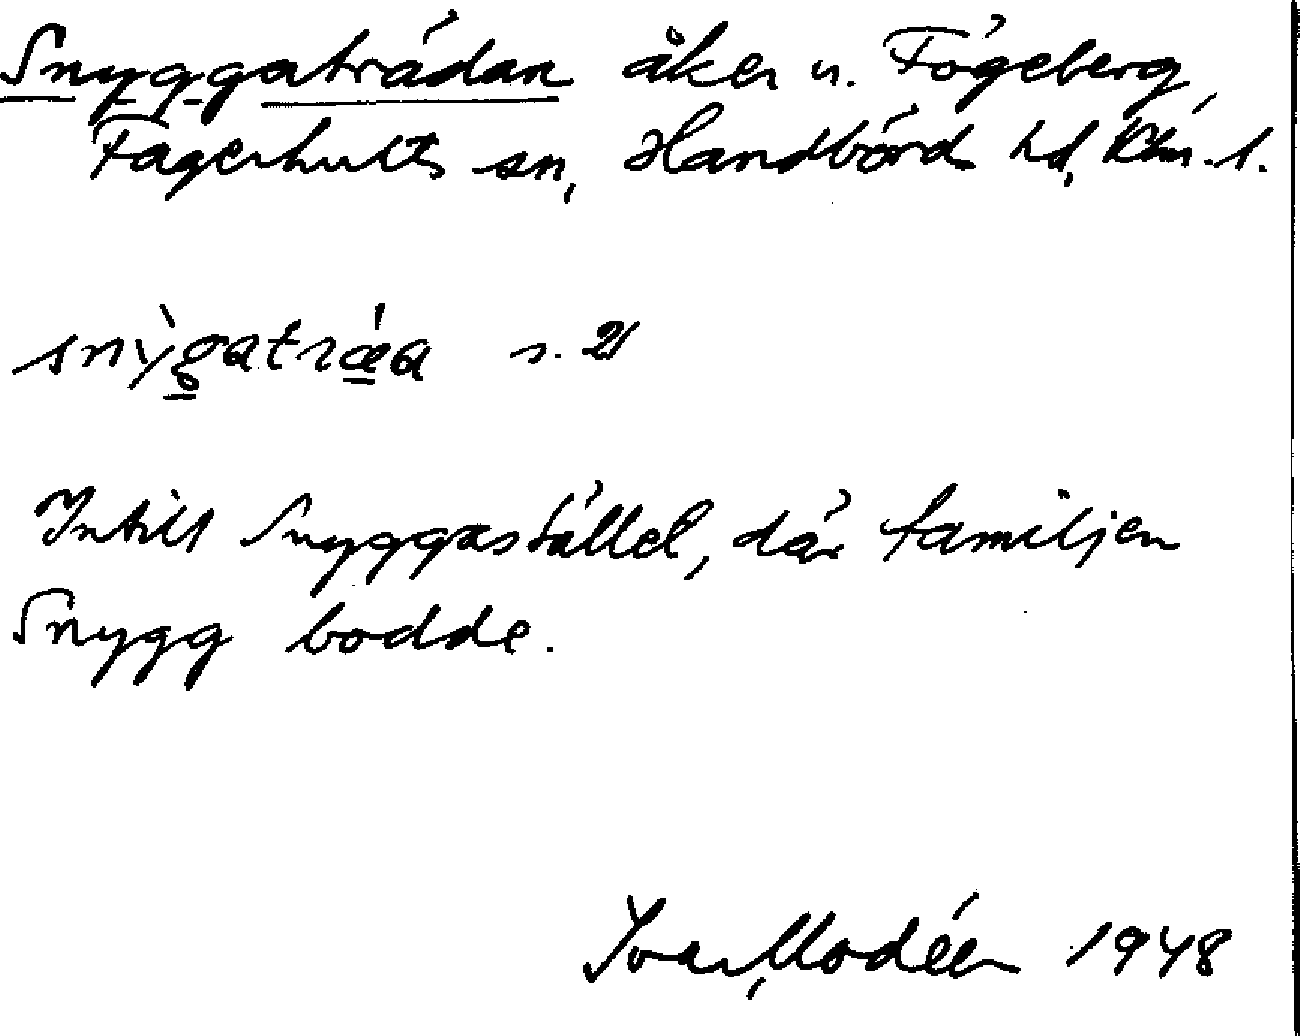 Snyggaträdan åker u. Fågeberg,
Fagerhults sn, Handbörds hd, Klm. l.
snỳgatrǽa s. 21
Intill Snyggastället, där familjen
Snygg bodde.
Ivar Modéer 1948